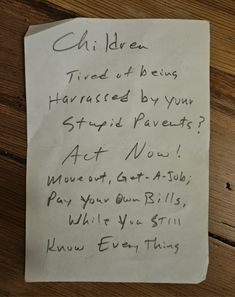 Children
Tired of being
Harrassed by your
Stupid Parents?
Act Now!
Move out, Get-A-Job;
Pay Your Own Bills,
While You Still
Know Every Thing